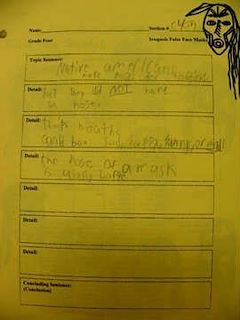 Name: Section #
Grade Four Iroquois False Face Masks
Topic Sentence:
Native americans
made mask for
Detail:
but they did NOT have
a nose.
Detail:
mouths
could be sad, happy, funny, or
Detail:
the nose of a mask
is usually large
Detail:
Detail:
Detail:
Concluding Sentence:
(Conclusion)